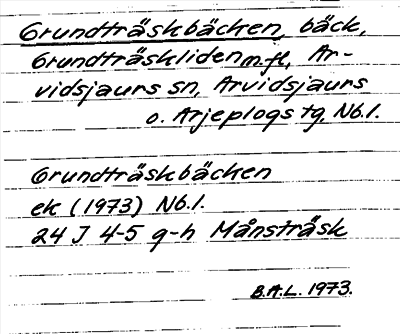 Grundträskbäcken, bäck,
Grundträskliden m.fl., Ar-
vidsjaurs sn, Arvidsjaurs
o. Arjeplogs tg, Nb.l.
Grundträskbäcken
ek (1973) Nb.l.
24 J 4-5 g-h Månsträsk
B.A.L. 1973.